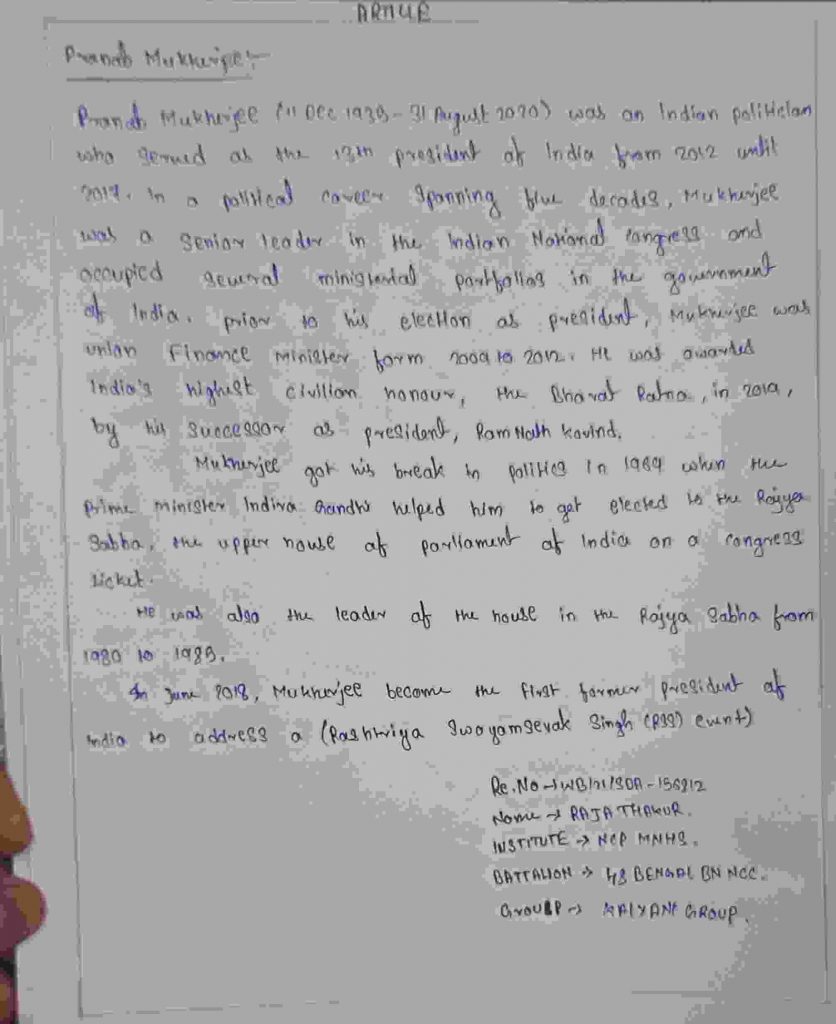 Pranab Mukherjee:-
Pranab Mukherjee (11 Dec 1935 - 31 August 2020) was an Indian politician
who served as the 13th president of India from 2012 until
2017. In a political career spanning five decades, Mukherjee
was a senior leader in the Indian National Congress and
occupied several ministerial portfolios in the government
of India. prior to his election as president, Mukherjee was
union Finance Minister form 2009 to 2012. He was awarded
India's highest civilian honour, the Bharat Ratna, in 2019,
by his successor as president, Ram Nath Kovind.
Mukherjee got his break in politics in 1969 when the
prime minister Indira Gandhi helped him to get elected to the Rajya
Sabha, the upper house of parliament of India on a congress
ticket.
He was also the leader of the house in the Rajya Sabha from
1980 to 1985.
In June 2018, Mukherjee become the first former president of
India to address a (Rashtriya Swayamsevak Singh (RSS) event)
Re.No → WB/21/SDA -
Name → RAJA THAKUR.
INSTITUTE → NCP MNHS.
BATTALION → 48 BENGAL BN NCC.
Group → KALYANI GROUP.